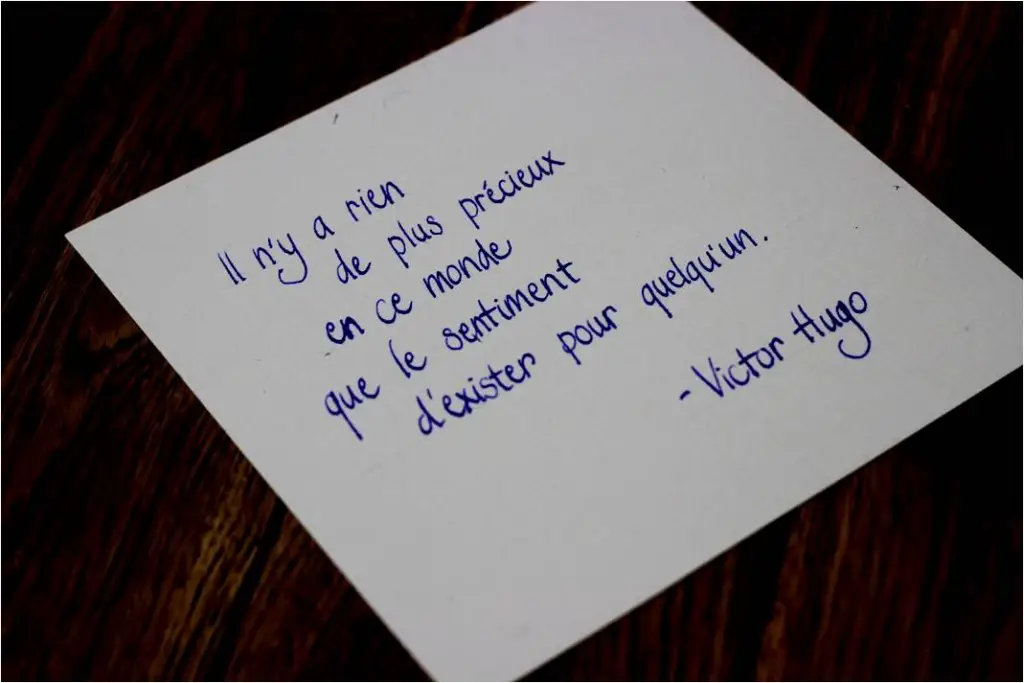 Il n'y a rien
de plus précieux
en ce monde
que le sentiment
d'éxister pour quelqu'un.
- Victor Hugo